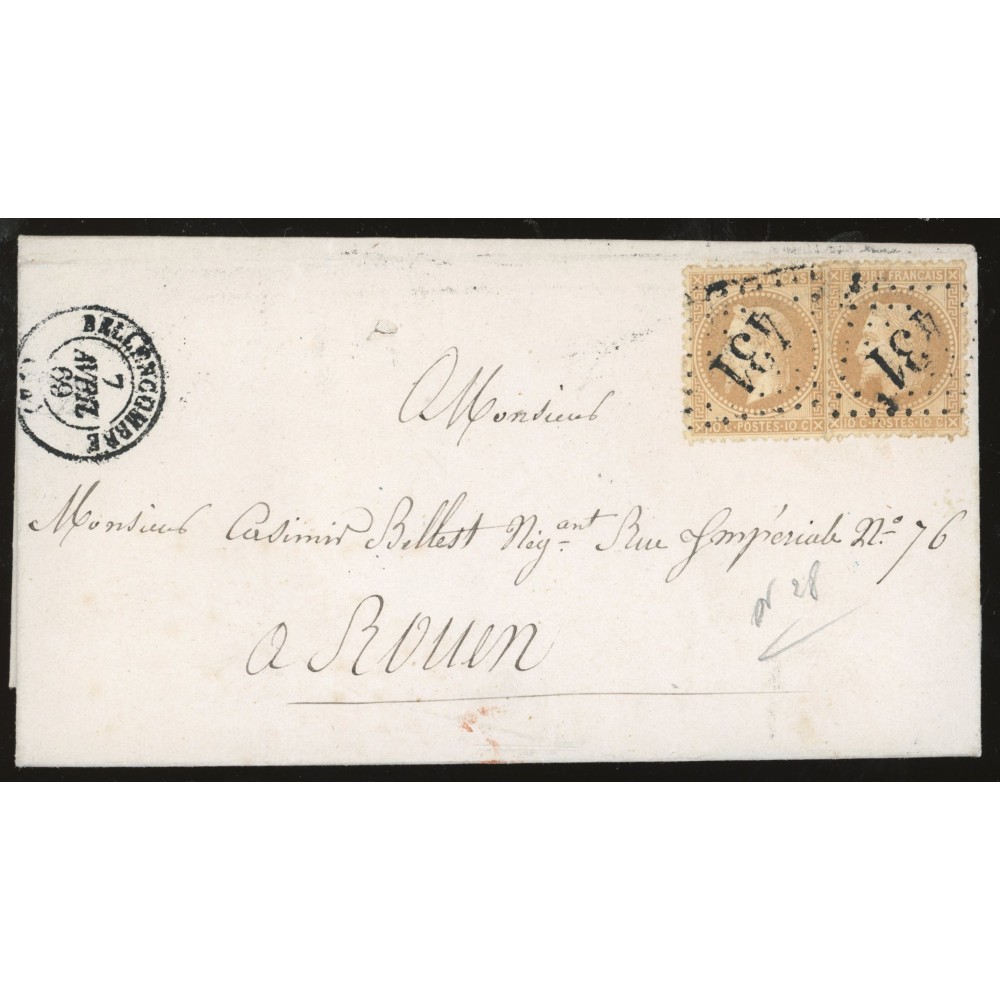 BELLENCOMBRE
7
AVRIL
69
EMPIRE FRANÇAIS
EMPIRE FRANÇAIS
431
431
10 C·POSTES·10 C
10 C·POSTES·10 C
Monsieur
Monsieur Casimir Bellest Nég.ant Rue Impériale No. 76
a Rouen
No 28